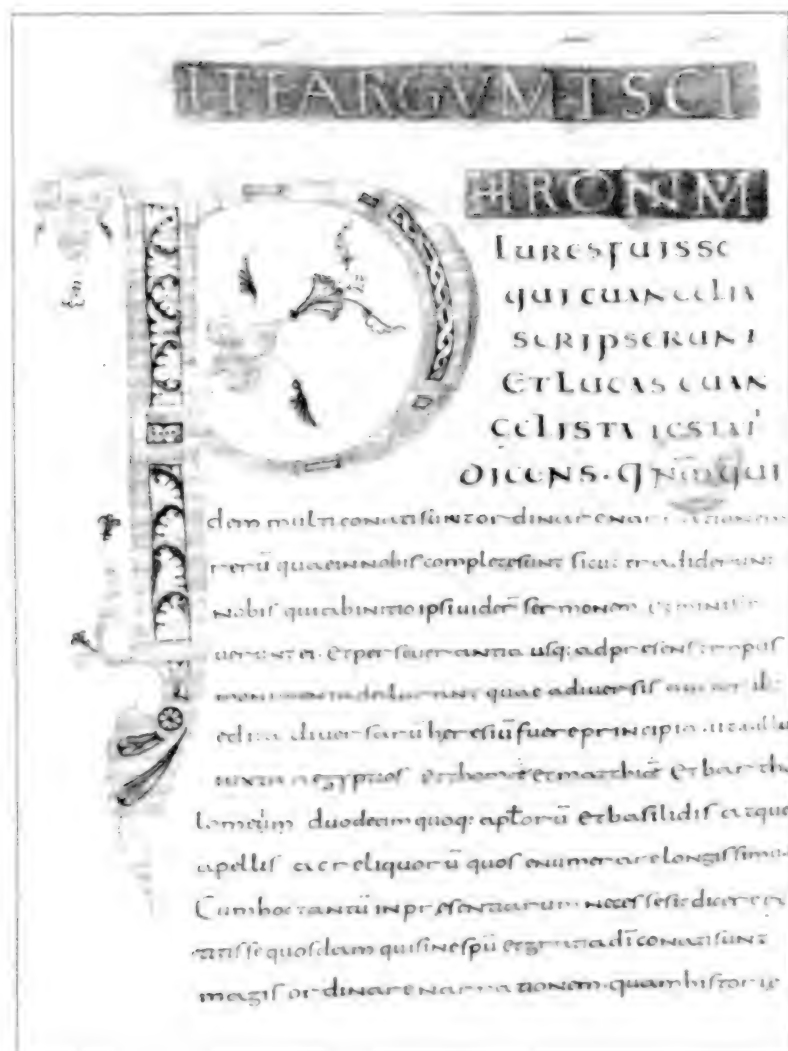 ITE ARGVMT SCI
HIRONIM
PLURES FUISSE
QUI EUANGELIA
SCRIPSERUNT
ET LUCAS EUAN
GELISTA TESTAT
DICENS. QNM QUI
dem multi conati sunt ordinare narrationem
rerū quae in nobis completę sunt sicut tradiderunt
nobis qui ab initio ipsi uider̄ sermonem et ministra
uerunt ei. Et perseuerantia usq: ad presens tempus
monumenta declarant quae a diuersis auctorib:
edita diuersarū heresiū fuere principia. ut est illu
iuxta aegyptios et thomā et matthiā et bartho
lomeum duodecim quoq: aptorū et basilidis atque
apellis ac reliquorū quos enumerare longissimū.
Cum hoc tantū in presentiarum necesse sit dicere ex
titisse quosdam qui sine spū et gratia dī conati sunt
magis ordinare narrationem. quam historie